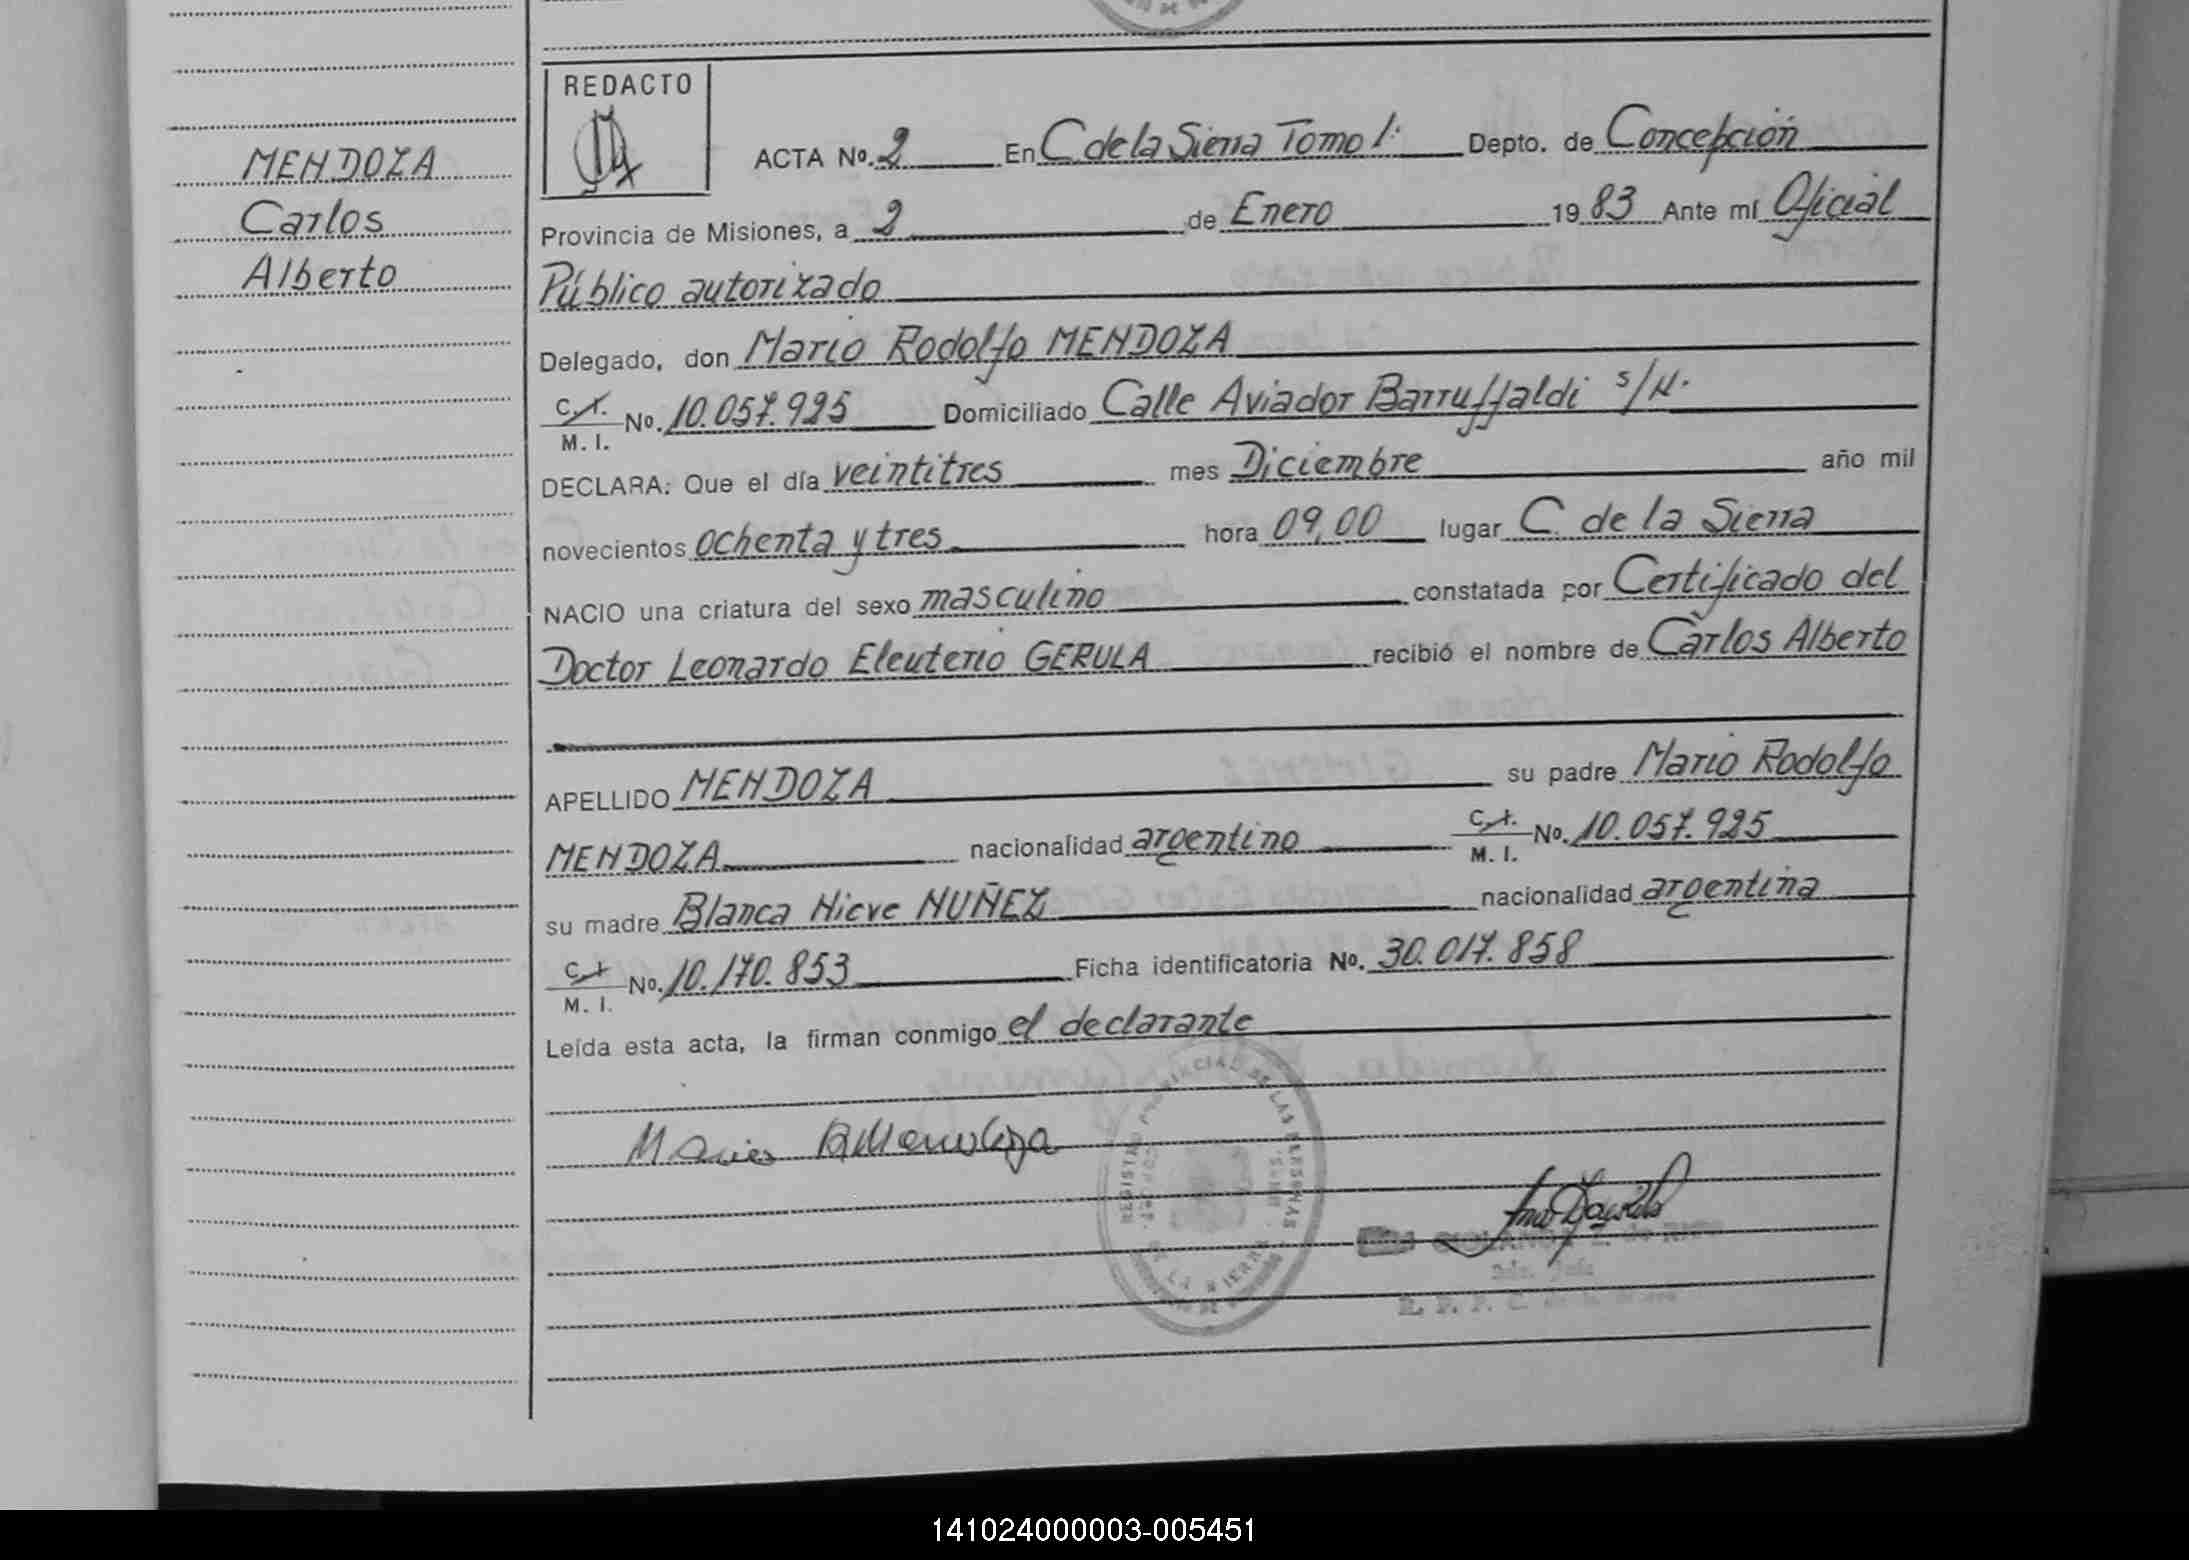 REDACTO
MENDOZA
Carlos
Alberto
ACTA No. 2 En C. de la Sierra Tomo 1: Depto. de Concepción
Provincia de Misiones, a 2 de Enero 1983 Ante mí Oficial
Público autorizado
Delegado, don Mario Rodolfo MENDOZA
C.I. M. I. No. 10.057.925 Domiciliado Calle Aviador Barruffaldi s/N.
DECLARA: Que el día veintitres mes Diciembre año mil
novecientos ochenta y tres hora 09,00 lugar C. de la Sierra
NACIO una criatura del sexo masculino constatada por Certificado del
Doctor Leonardo Eleuterio GERULA recibió el nombre de Carlos Alberto
APELLIDO MENDOZA su padre Mario Rodolfo
MENDOZA nacionalidad argentino C.I. M. I. No. 10.057.925
su madre Blanca Nieve NUÑEZ nacionalidad argentina
C.I. M. I. No. 10.170.853 Ficha identificatoria No. 30.017.858
Leída esta acta, la firman conmigo el declarante
Mario R Mendoza
REGISTRO PROVINCIAL DE LAS PERSONAS
DE LA SIERRA
141024000003-005451